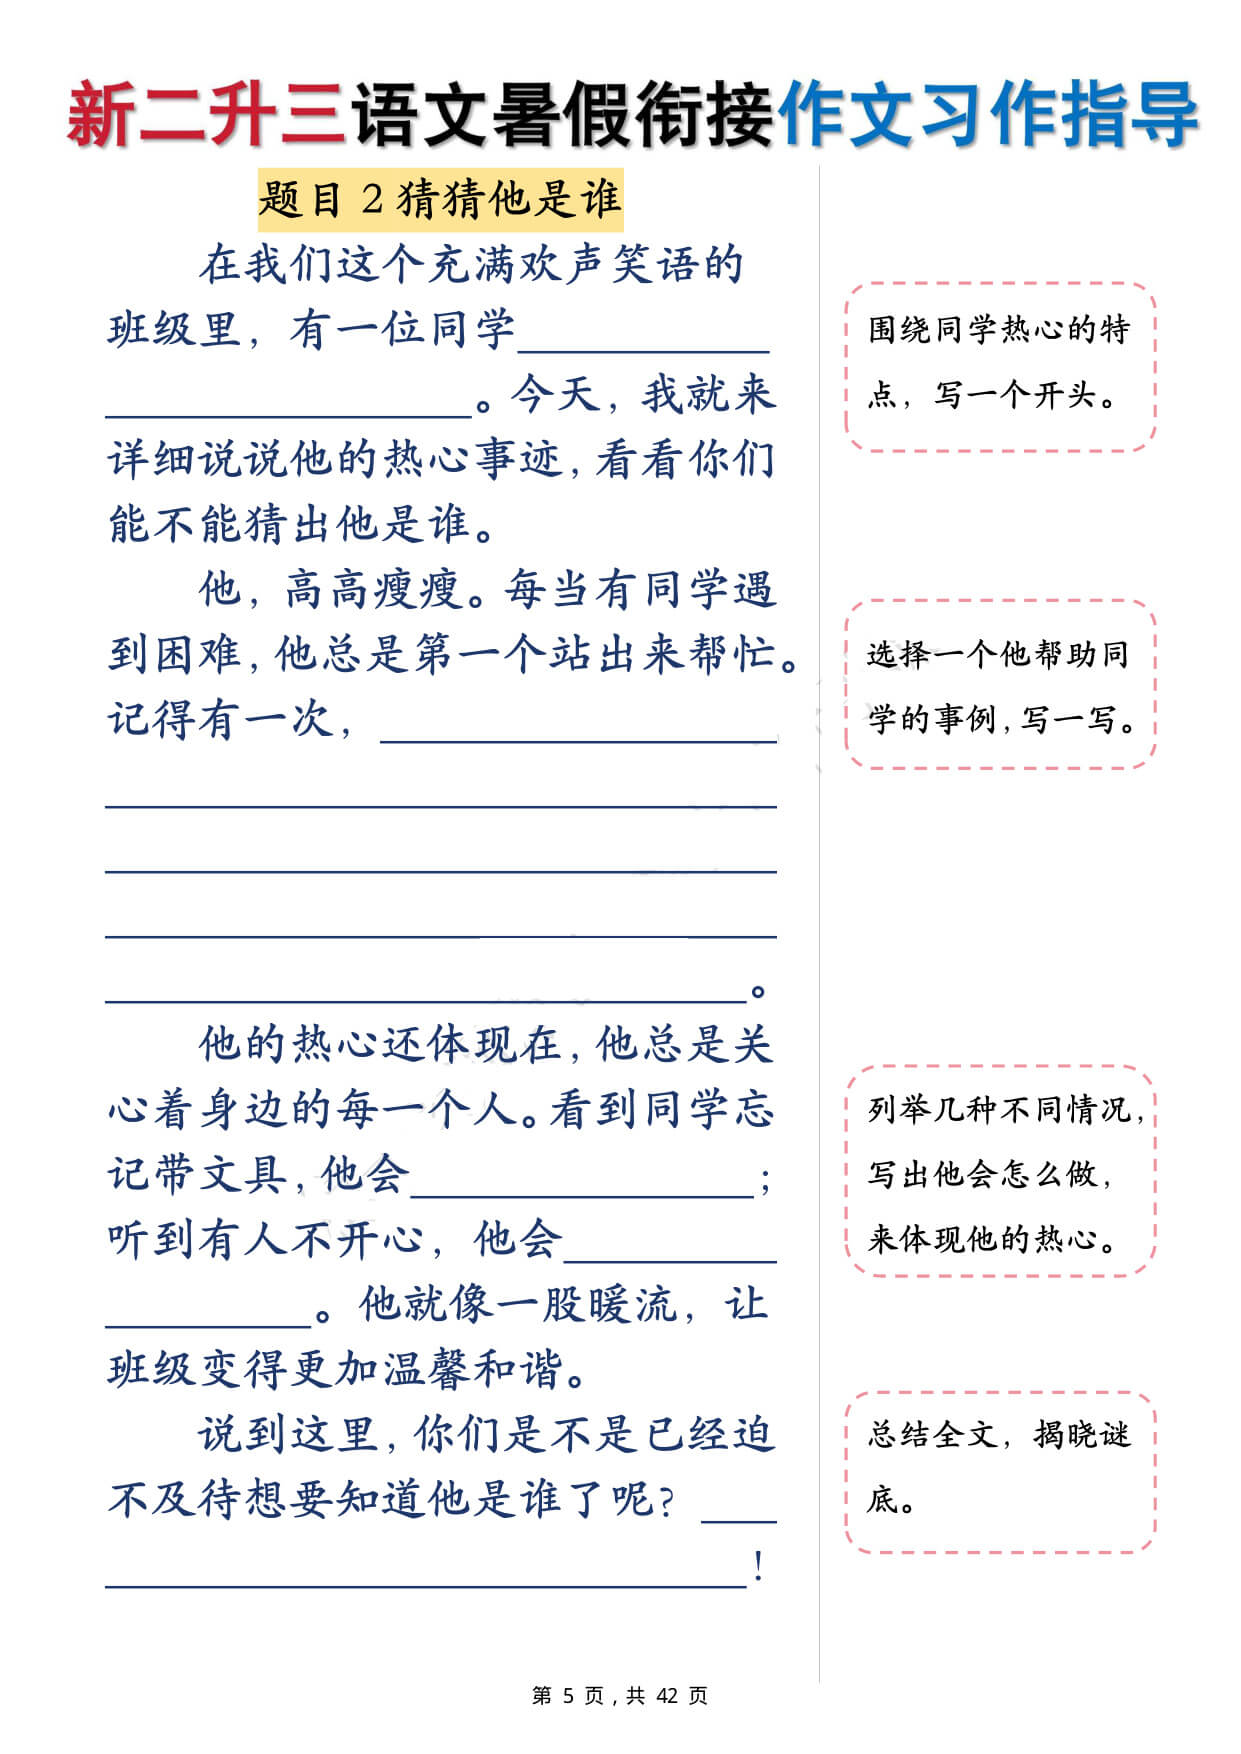 新二升三语文暑假衔接作文习作指导
题目2猜猜他是谁
在我们这个充满欢声笑语的
班级里，有一位同学___________
________________。今天，我就来
详细说说他的热心事迹，看看你们
能不能猜出他是谁。
他，高高瘦瘦。每当有同学遇
到困难，他总是第一个站出来帮忙。
记得有一次，_________________
_____________________________
_____________________________
_____________________________
____________________________。
他的热心还体现在，他总是关
心着身边的每一个人。看到同学忘
记带文具，他会_______________；
听到有人不开心，他会_________
_________。他就像一股暖流，让
班级变得更加温馨和谐。
说到这里，你们是不是已经迫
不及待想要知道他是谁了呢？___
____________________________！
围绕同学热心的特
点，写一个开头。
选择一个他帮助同
学的事例，写一写。
列举几种不同情况，
写出他会怎么做，
来体现他的热心。
总结全文，揭晓谜
底。
第 5 页，共 42 页